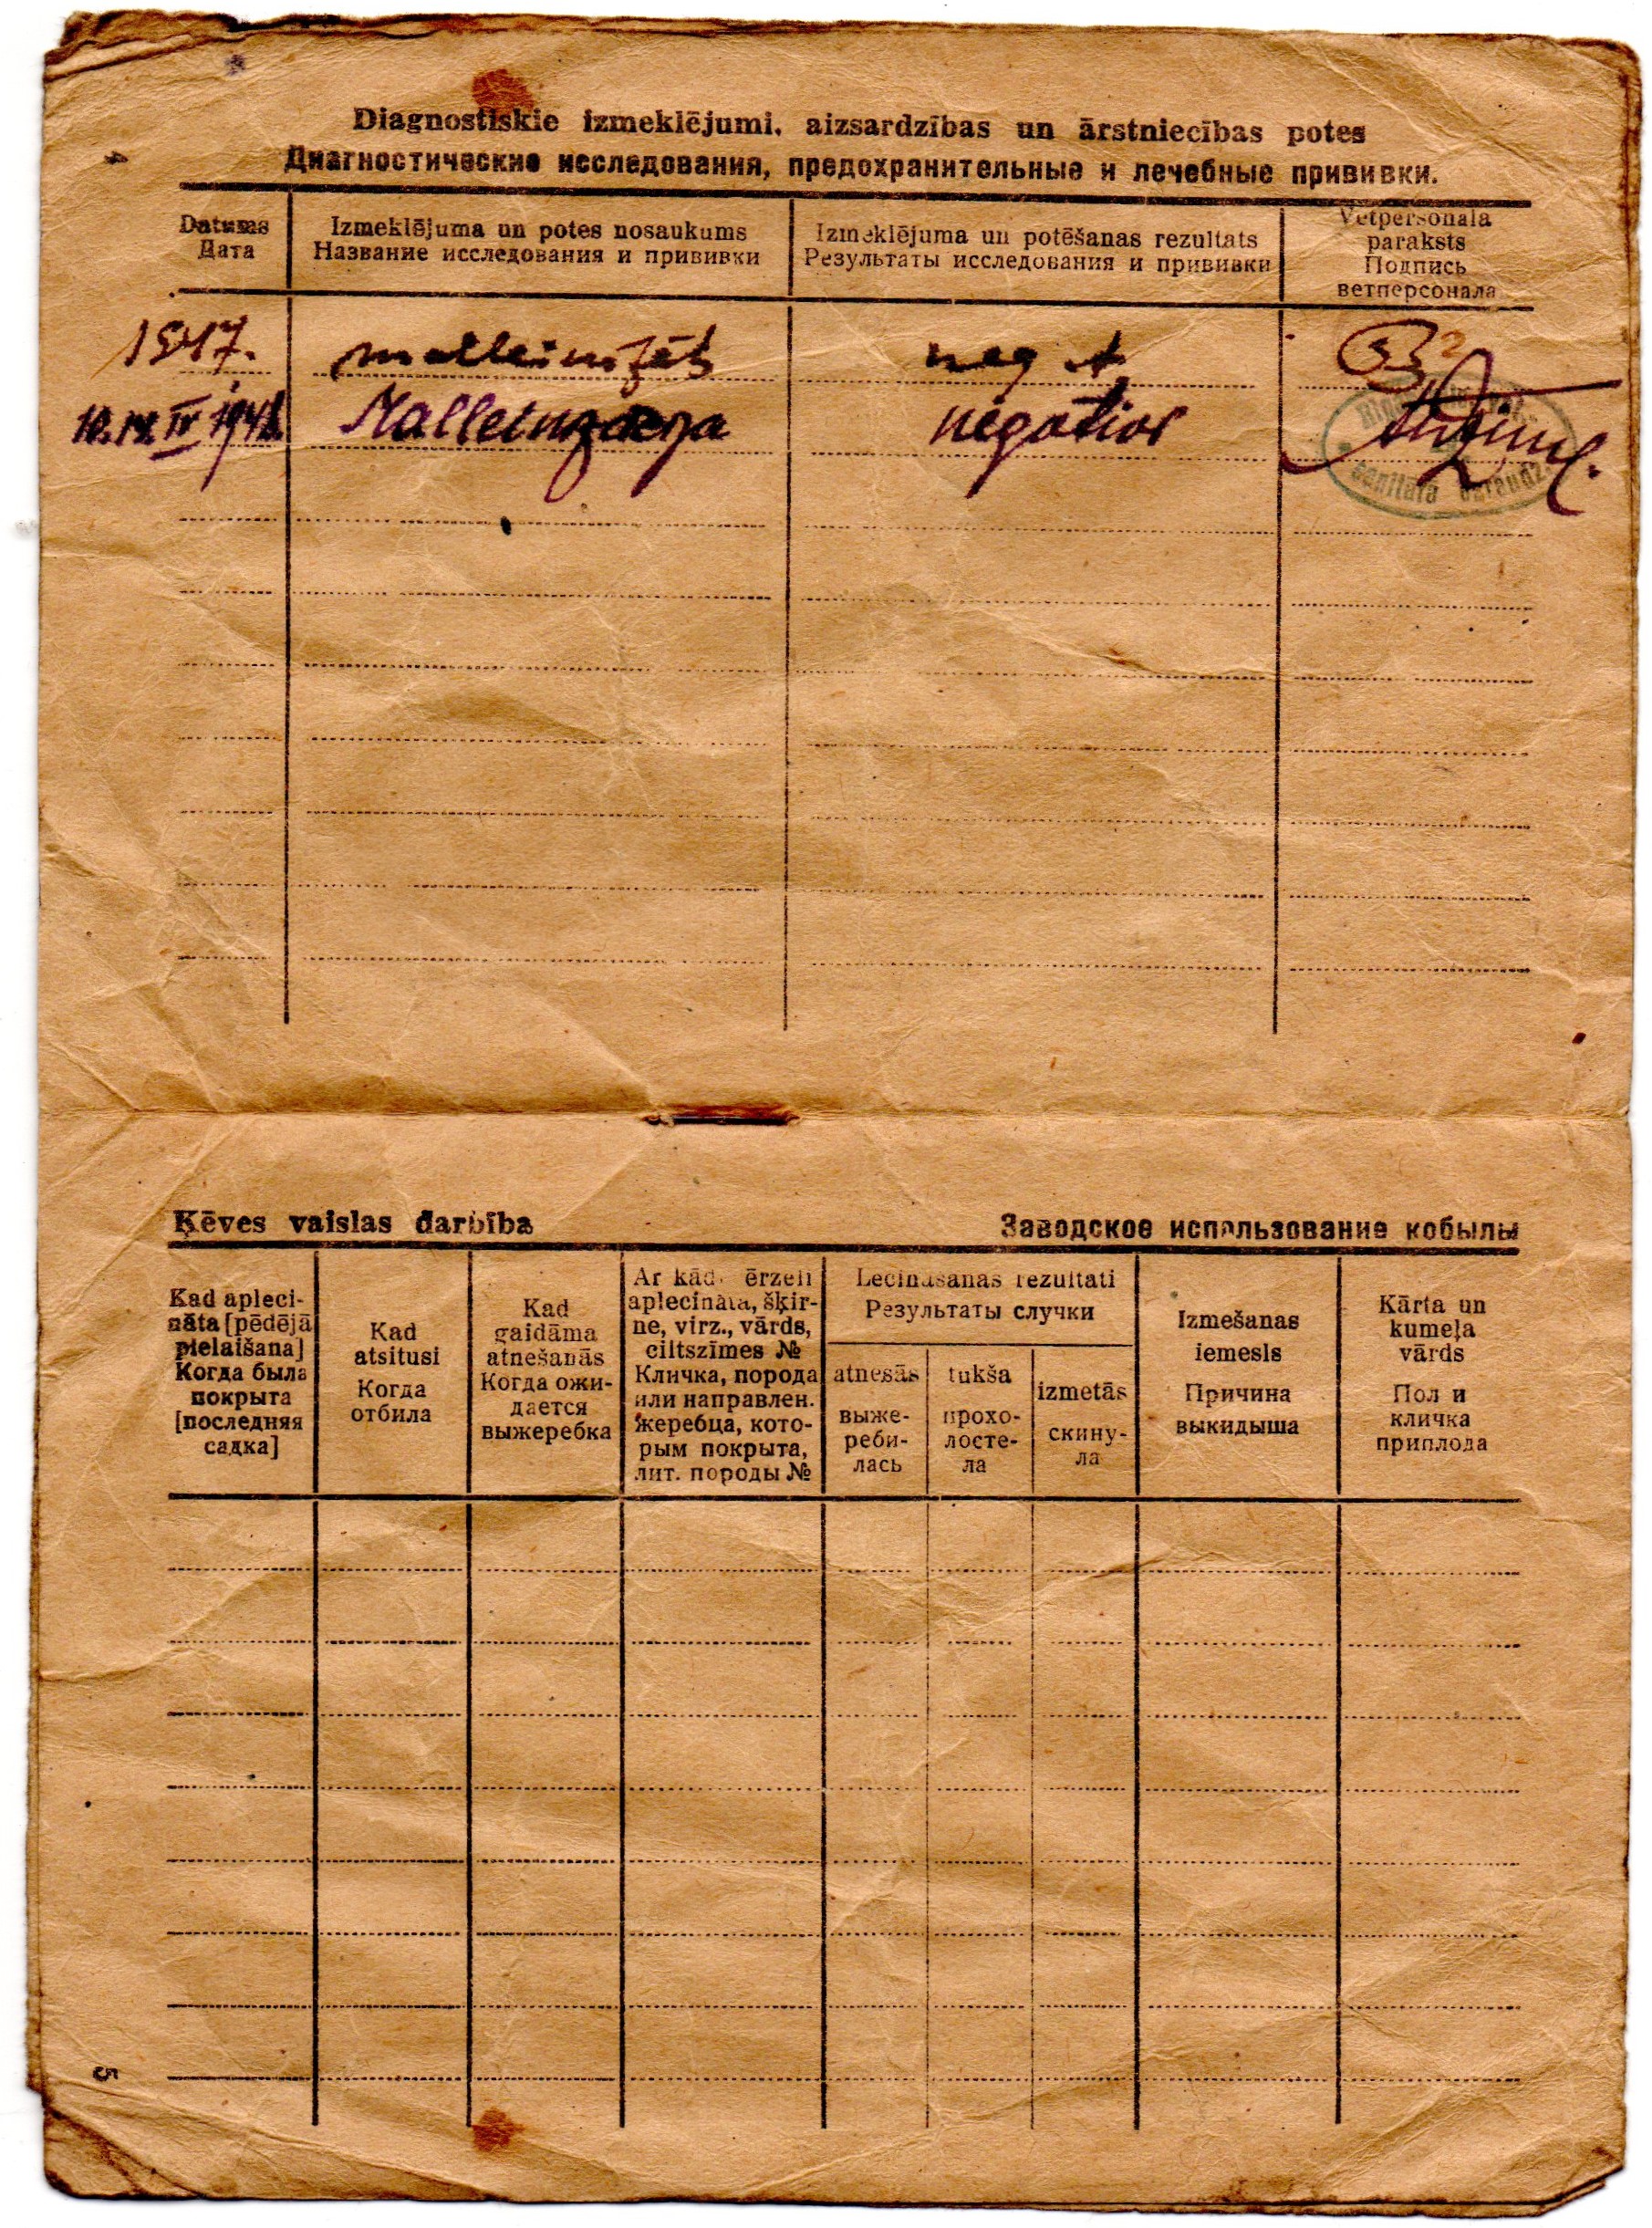 4
Diagnostiskie izmeklējumi, aizsardzības un ārstniecības potes
Диагностические исследования, предохранительные и лечебные прививки.
Datums
Дата
Izmeklējuma un potes nosaukums
Название исследования и прививки
Izmeklējuma un potēšanas rezultats
Результаты исследования и прививки
Vetpersonala
paraksts
Подпись
ветперсонала
1947. malleinizēts neg
IV 1948. negativs
sanitārā
Ķēves vaislas darbība
Заводское использование кобылы
Kad apleci-
nāta [pēdējā
pielaišana]
Когда была
покрыта
[последняя
садка]
Kad
atsitusi
Когда
отбила
Kad
gaidāma
atnešanās
Когда ожи-
дается
выжеребка
Ar kādu ērzeli
aplecināta, šķir-
ne, virz., vārds,
ciltszīmes №
Кличка, порода
или направлен.
жеребца, кото-
рым покрыта,
лит. породы №
Lecināšanas rezultati
Результаты случки
atnesās
выже-
реби-
лась
tukša
прохо-
лосте-
ла
izmetās
скину-
ла
Izmešanas
iemesls
Причина
выкидыша
Kārta un
kumeļa
vārds
Пол и
кличка
приплода
5